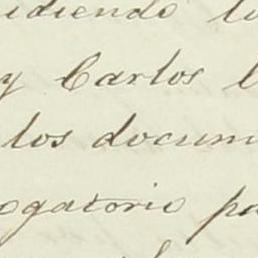 idiendo lo
y Carlos l
los docum
ogatorio pa